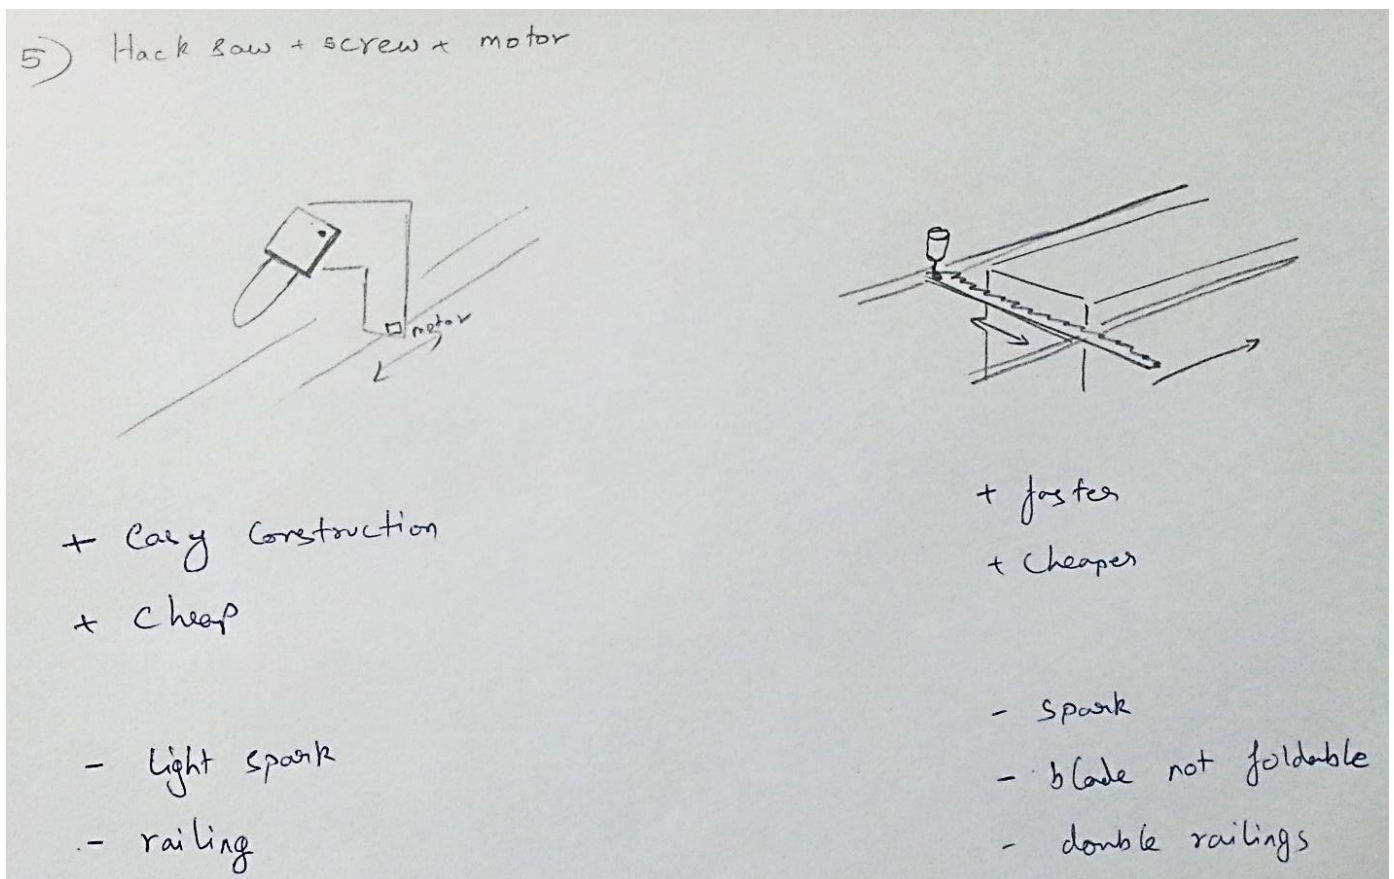 5) Hack saw + screw + motor
motor
+ Easy Construction
+ Cheap
- light spark
- railing
+ faster
+ Cheaper
- spark
- blade not foldable
- double railings